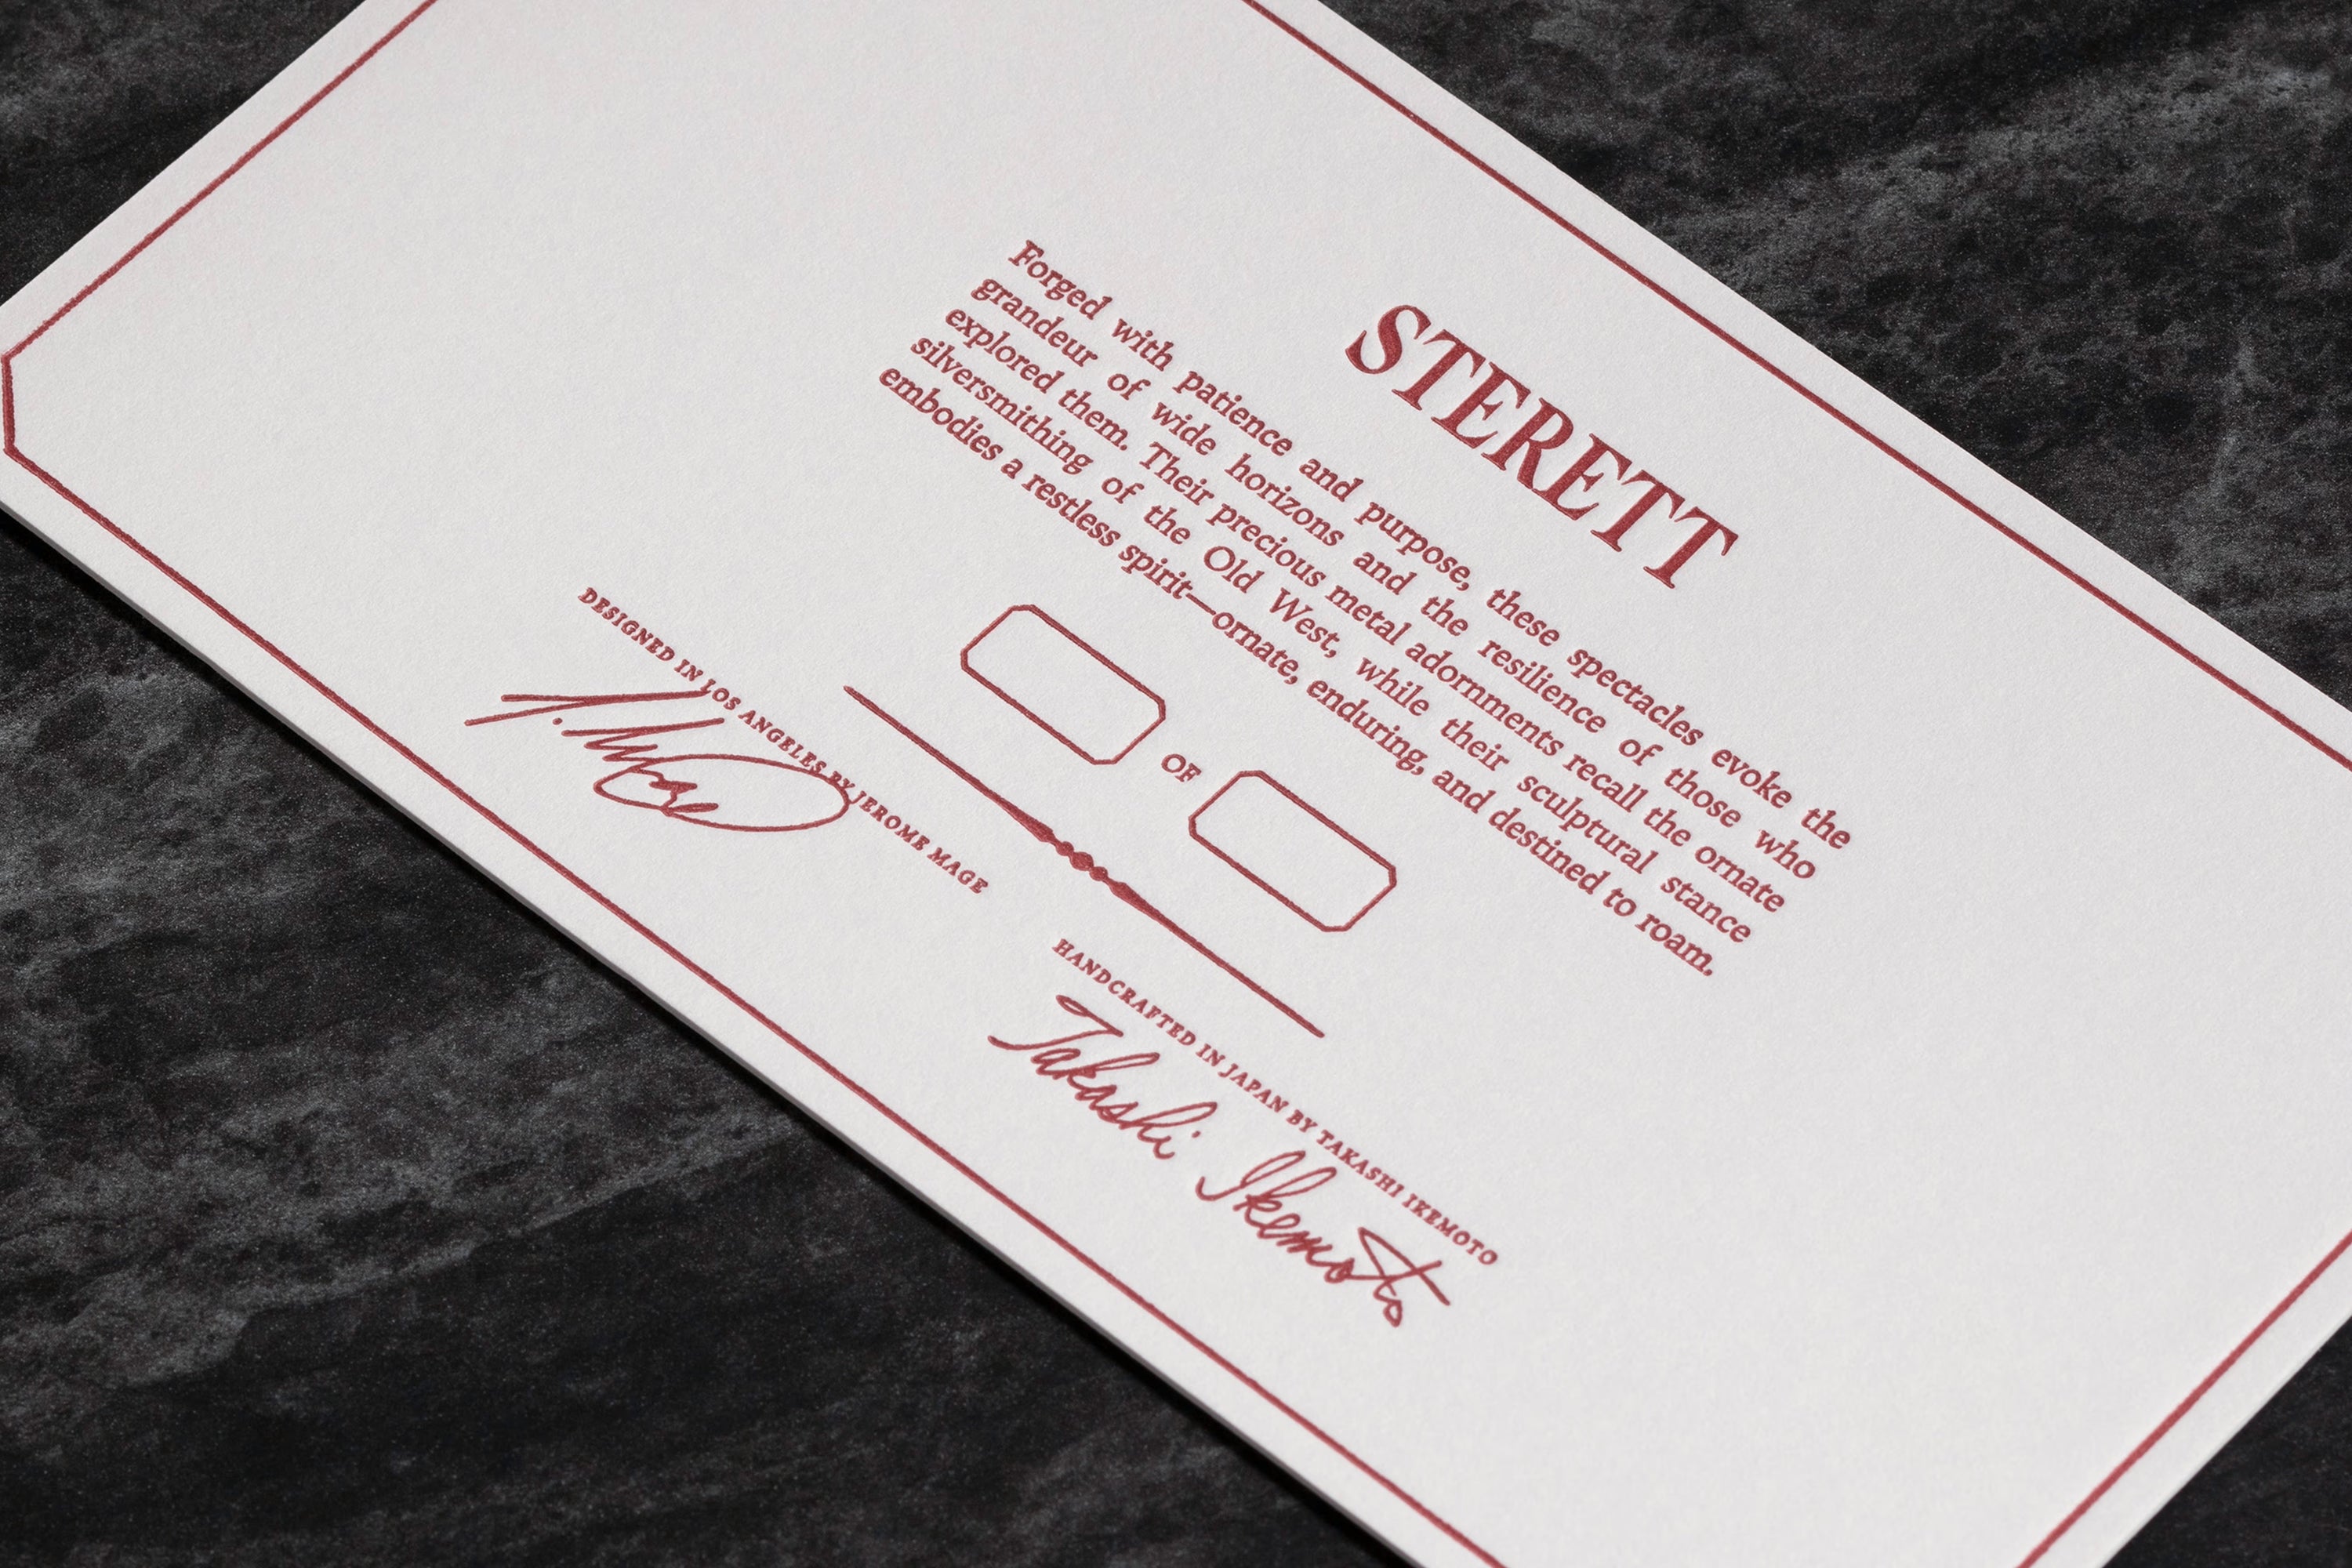 STERETT
Forged with patience and purpose, these spectacles evoke the
grandeur of wide horizons and the resilience of those who
explored them. Their precious metal adornments recall the ornate
silversmithing of the Old West, while their sculptural stance
embodies a restless spirit—ornate, enduring, and destined to roam.
OF
DESIGNED IN LOS ANGELES BY JEROME MAGE
HANDCRAFTED IN JAPAN BY TAKASHI IKEMOTO
Takashi Ikemoto